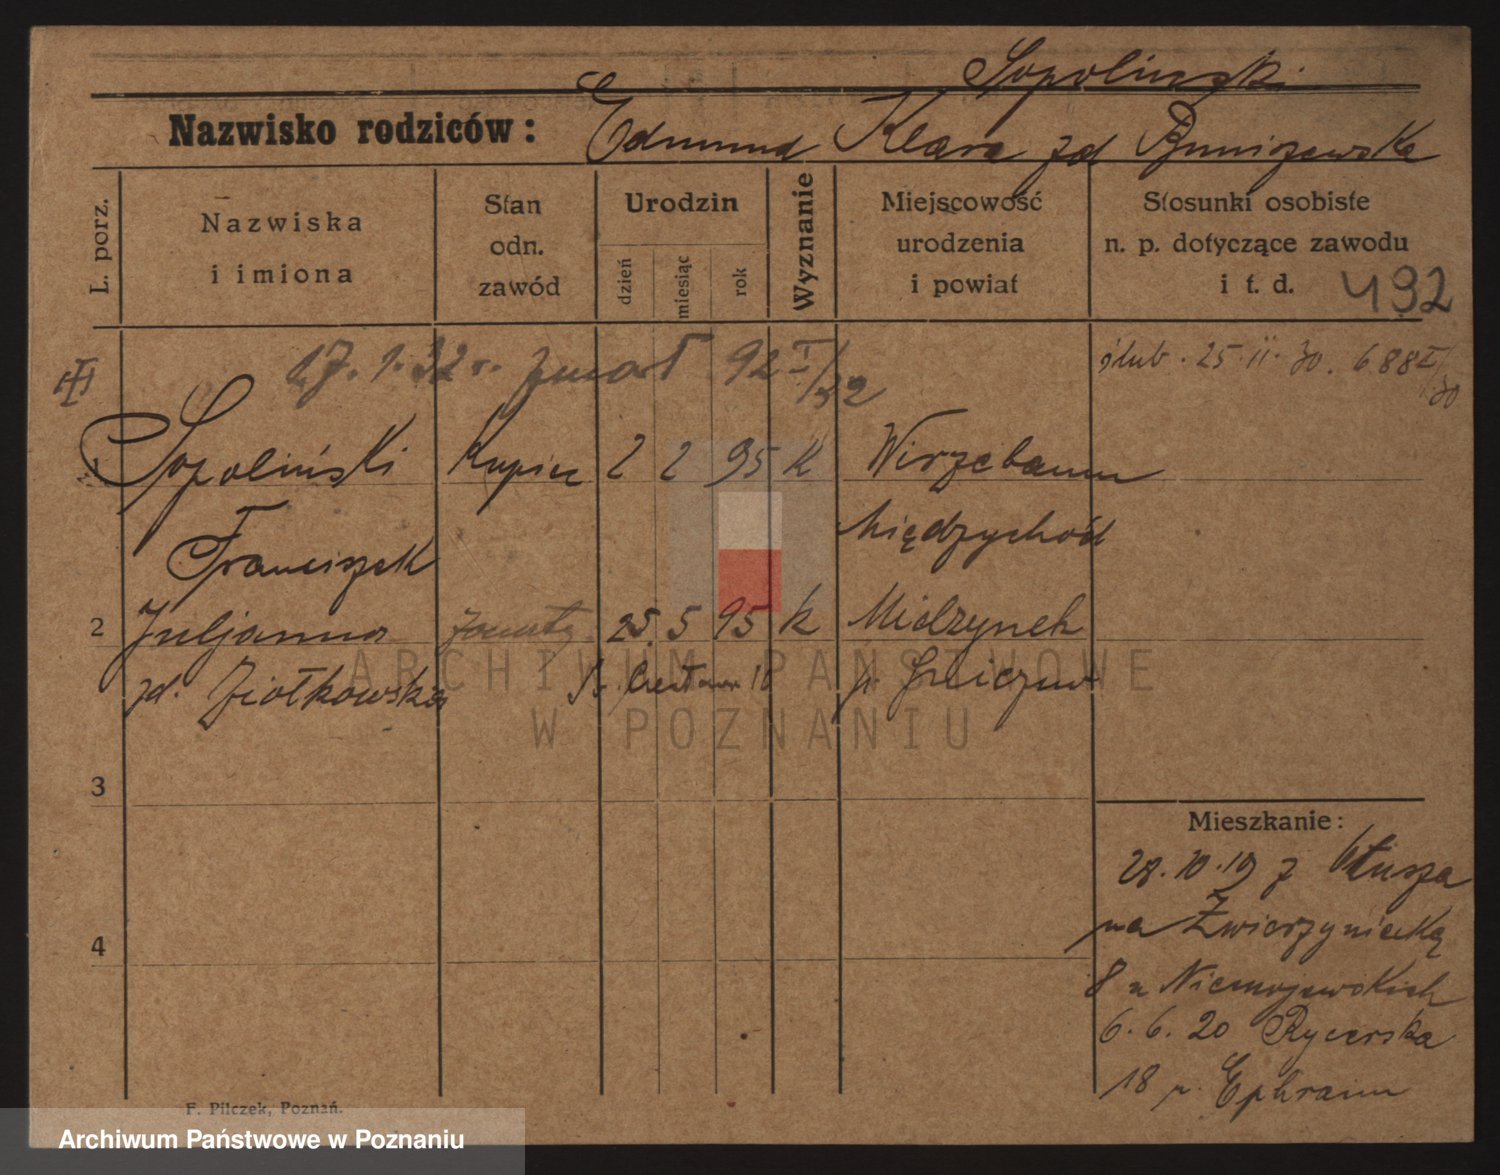 Sopolinski
Nazwisko rodziców: Edmund Klara zd
L. porz.
Nazwiska i imiona
Stan odn. zawód
Urodzin
dzień
miesiąc
rok
Wyznanie
Miejscowość urodzenia i powiat
Stosunki osobiste n. p. dotyczące zawodu i t. d.
492
17. 1. 32 r. zmarł 92 I/32
ślub. 25. II. 30. 688 I/30
Sopoliński Kupiec 2 2 95 K Wirzebaum
Franciszek Międzychód
2 Juljanna 25. 5 95 K Mielzynek
zd. Ziołkowska p. Gniezno
ARCHIWUM PAŃSTWOWE
W POZNANIU
3
Mieszkanie:
28. 10. 19 z
na Zwierzyniecką
4
8 u Niemojewskich
6. 6. 20 Rycerska
18 p. Ephraim
F. Pilczek, Poznań.
Archiwum Państwowe w Poznaniu